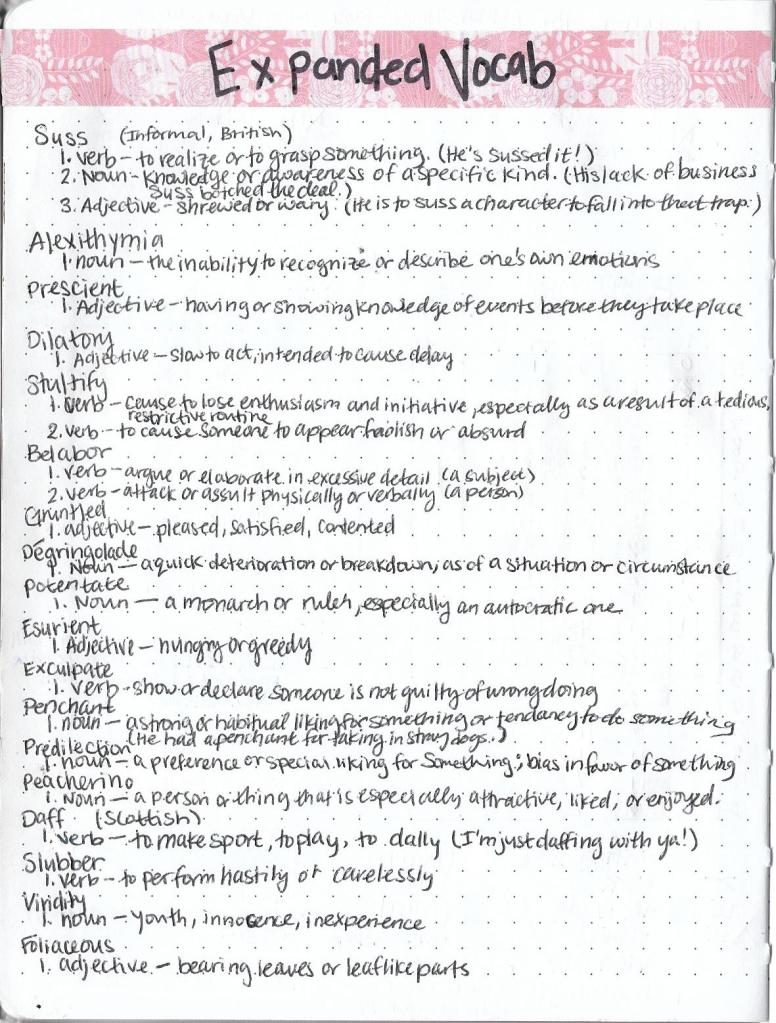 Expanded Vocab
Suss (Informal, British)
1. verb - to realize or to grasp something. (He's sussed it!)
2. Noun - knowledge or awareness of a specific kind. (His lack of business
suss botched the deal.)
3. Adjective - shrewed or wary. (He is to suss a character to fall into that trap.)
Alexithymia
1. noun - the inability to recognize or describe one's own emotions
prescient
1. Adjective - having or showing knowledge of events before they take place
Dilatory
1. Adjective - slow to act, intended to cause delay
Stultify
1. verb - cause to lose enthusiasm and initiative, especially as a result of a tedious,
restrictive routine
2. verb - to cause someone to appear foolish or absurd
Belabor
1. verb - argue or elaborate in excessive detail (a subject)
2. verb - attack or assult physically or verbally (a person)
Gruntled
1. adjective - pleased, satisfied, contented
Dégringolade
1. Noun - a quick deterioration or breakdown, as of a situation or circumstance
Potentate
1. Noun - a monarch or ruler, especially an autocratic one
Esurient
1. Adjective - hungry or greedy
Exculpate
1. verb - show or declare someone is not guilty of wrongdoing
Penchant
1. noun - a strong or habitual liking for something or tendancy to do something
(He had a penchant for taking in stray dogs.)
Predilection
1. noun - a preference or special liking for something; bias in favor of something
Peacherino
1. Noun - a person or thing that is especially attractive, liked, or enjoyed.
Daff (Scottish)
1. verb - to make sport, to play, to dally (I'm just daffing with ya!)
Slubber
1. verb - to perform hastily or carelessly
Viridity
1. noun - youth, innocence, inexperience
Foliaceous
1. adjective - bearing leaves or leaflike parts